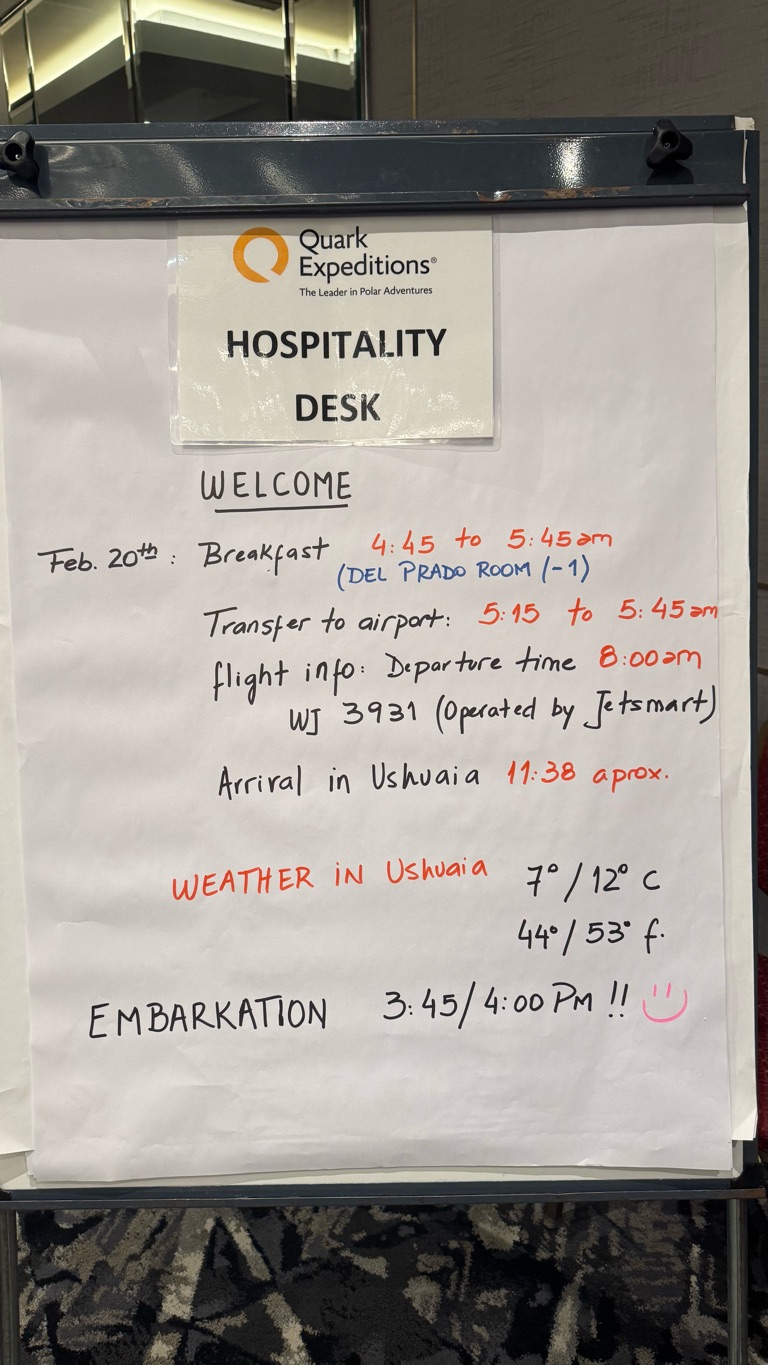 Quark
Expeditions®
The Leader in Polar Adventures
HOSPITALITY
DESK
WELCOME
Feb. 20th : Breakfast 4:45 to 5:45am
(DEL PRADO ROOM /-1)
Transfer to airport: 5:15 to 5:45am
flight info: Departure time 8:00am
WJ 3931 (Operated by Jetsmart)
Arrival in Ushuaia 11:38 aprox.
WEATHER iN Ushuaia 7°/12° C
44°/53° f.
EMBARKATION 3:45/4:00 PM !!